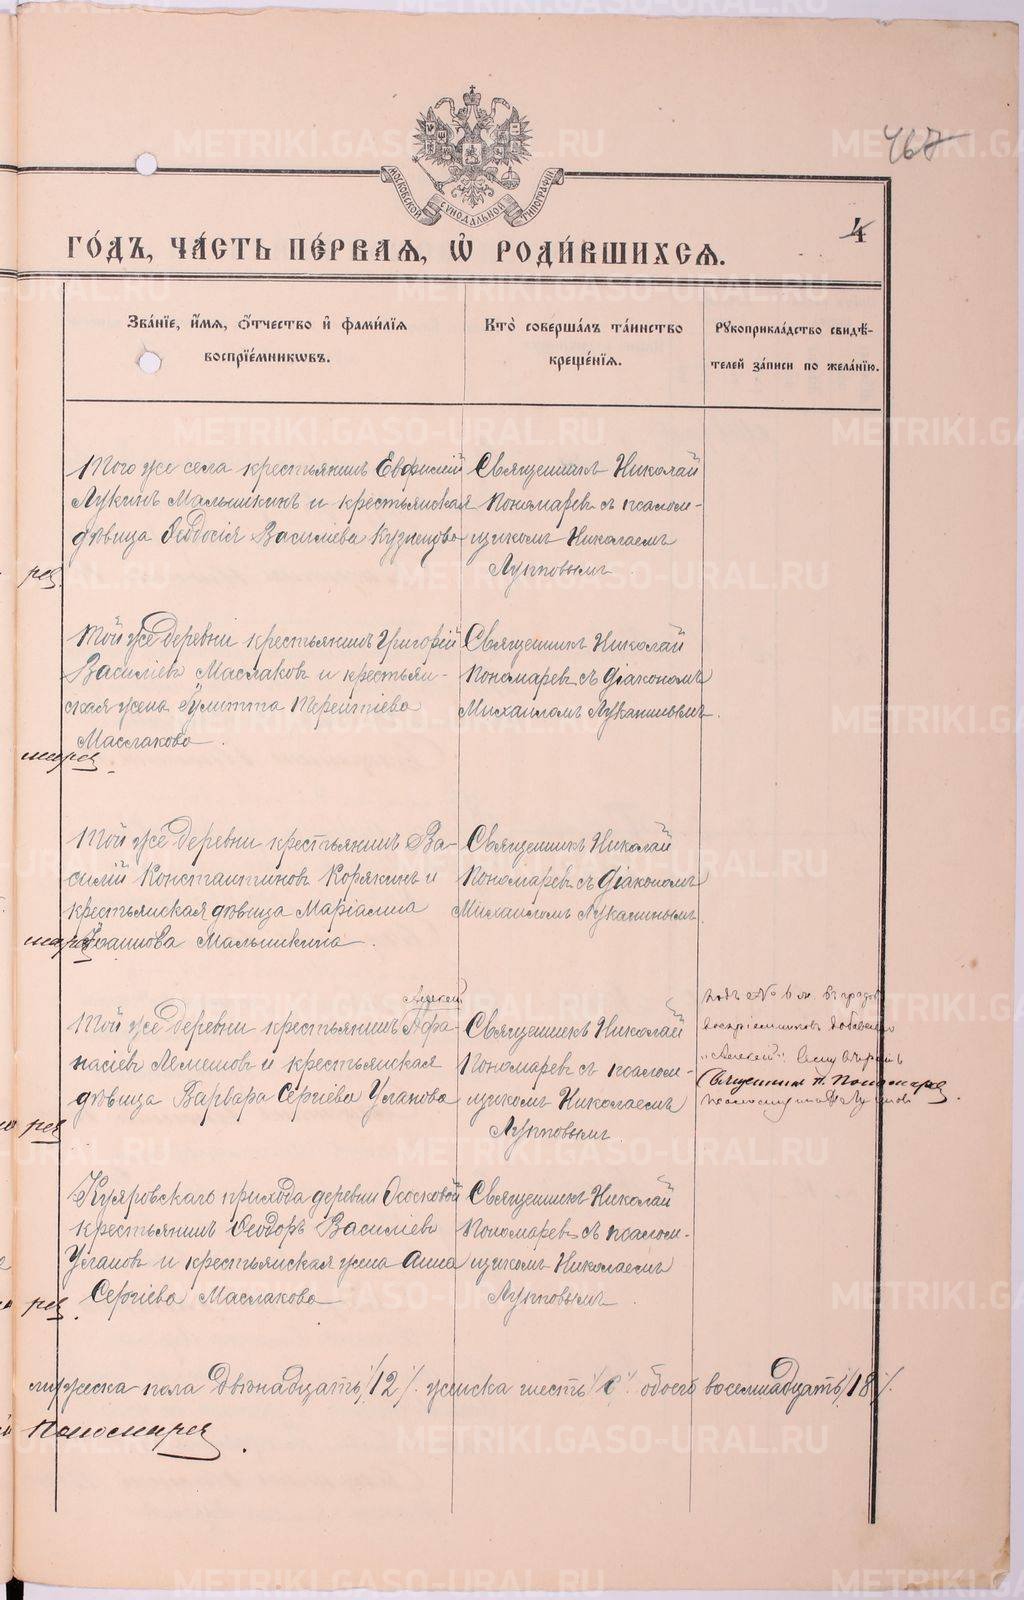 467
МОСКОВСКОЙ СѴНОДАЛЬНОЙ ТИПОГРАФІИ
4
ГО́ДЪ, ЧА́СТЬ ПЕ́РВАѦ, Ѿ РОДИ́ВШИХСѦ.
Зва́нїе, и҆́мѧ, ѻ҆́тчество и҆ фами́лїѧ
воспрїе́мникѡвъ.
Кто̀ соверша́лъ та́инство
креще́нїѧ.
Рꙋкоприкла́дство свидѣ́-
телей за́писи по жела́нїю.
Того же села крестьянинъ Евфимій
Лукинъ Малышкинъ и крестьянская
дѣвица Ѳеодосія Василіева Кузнецова
Священникъ Николай
Пономаревъ съ псалом-
щикомъ Николаемъ
Лупповымъ
рев
Той же деревни крестьянинъ Григорій
Василіевъ Маслаковъ и крестьян-
ская жена Терентіева
Маслакова.
Священникъ Николай
Пономаревъ съ діакономъ
Михаиломъ Луканинымъ.
Той же деревни крестьянинъ Ва-
силій Константиновъ Корякинъ и
крестьянская дѣвица Маріамна
Іоаннова Малышкина.
Священникъ Николай
Пономаревъ съ діакономъ
Михаиломъ Луканинымъ.
Алексей
Той же деревни крестьянинъ Афа-
насіевъ Лемешовъ и крестьянская
дѣвица Варвара Сергіева Уланова
Священникъ Николай
Пономаревъ съ псалом-
щикомъ Николаемъ
Лупповымъ.
подъ № 6 м. въ графѣ
воспріемниковъ добавлено
„Алексей".
Священник Н. Пономарев
рев
Куяровскаго прихода деревни Ососковой
крестьянинъ Ѳеодоръ Василіевъ
Улановъ и крестьянская жена Анна
Сергіева Маслакова
Священникъ Николай
Пономаревъ съ псалом-
щикомъ Николаемъ
Лупповымъ.
рев.
мужеска пола двѣнадцать /12/. женска шесть /6/ обоего восемнадцать /18/.
Пономарев.